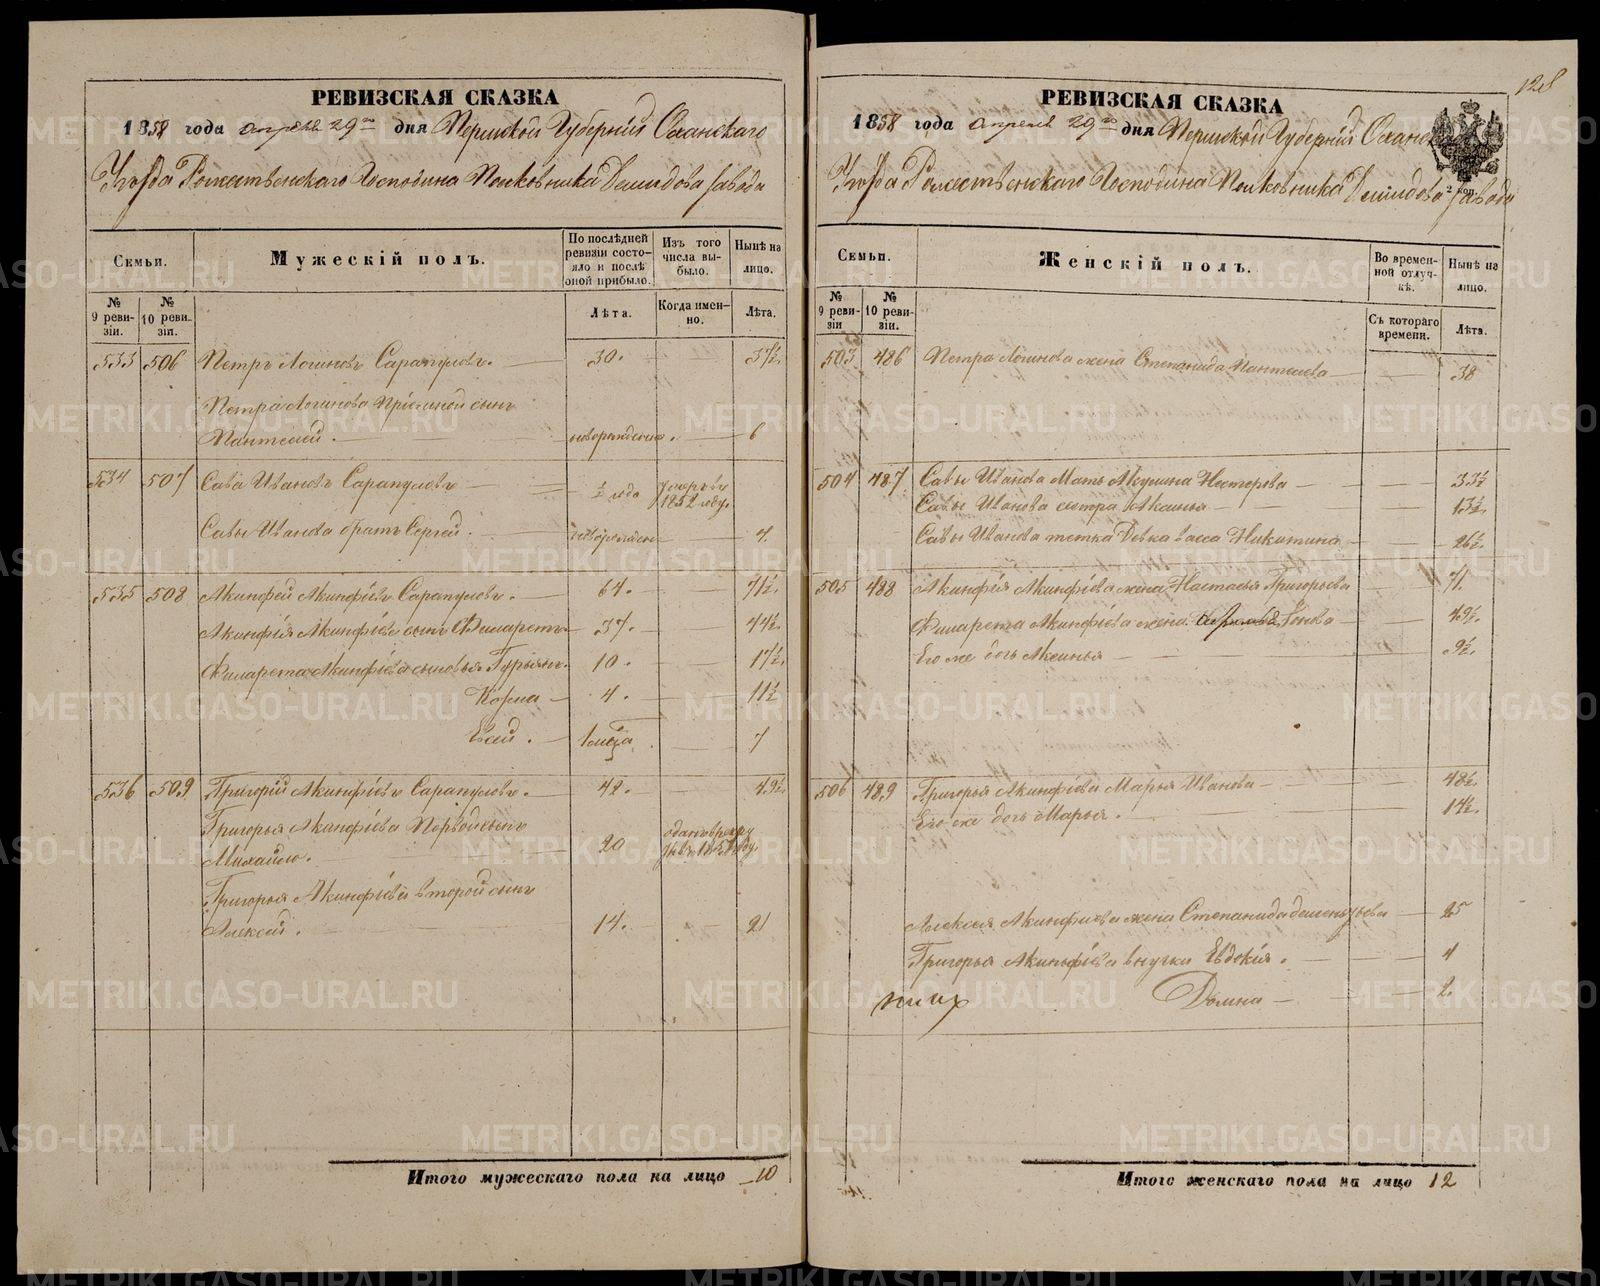 РЕВИЗСКАЯ СКАЗКА
1858 года апреля 29го дня Пермской Губернiи Оханскаго
Уѣзда Рожественскаго Господина Полковника Демидова завода
Семьи.
Мужескiй полъ.
По послѣдней ревизiи состояло и послѣ оной прибыло.
Изъ того числа выбыло.
Нынѣ на лицо.
№ 9 ревизiи.
№ 10 ревизiи.
Лѣта.
Когда именно.
Лѣта.
533 506 Петръ Логиновъ Сарапуловъ. 30. 37½.
Петра Логинова сынъ
Пантелей. новорожденъ. 6
534 507 Сава Ивановъ Сарапуловъ ½ года умеръ въ 1852 году.
Савы Иванова братъ Сергей. новорожден 7.
535 508 Акинфей Акинфiевъ Сарапуловъ. 64. 71½.
Акинфiя Акинфiева сынъ Филаретъ 37. 44½.
Филарета Акинфiева сыновья Гурьянъ. 10. 17½.
Козма 4. 11½
Евсей. 7
536 509 Григорiй Акинфiевъ Сарапуловъ. 42. 49½.
Григорья Акинфiева Первой сынъ
Михайло. 20
Григорья Акинфiева второй сынъ
Алексей. 14. 21
Итого мужескаго пола на лицо 10
128
РЕВИЗСКАЯ СКАЗКА
1858 года апреля 29го дня Пермской Губернiи Оханскаго
Уѣзда Рожественскаго Господина Полковника Демидова завода
2 коп.
Семьи.
Женскiй полъ.
Во временной отлучкѣ.
Нынѣ на лицо.
№ 9 ревизiи
№ 10 ревизiи.
Съ котораго времени.
Лѣта.
503 486 Петра Логинова жена Степанида Пантелеева 38
504 487 Савы Иванова Мать Акулина Нестерова 33½
Савы Иванова сестра Аксинья 13½.
Савы Иванова тетка Девка Васса Никитина 26½.
505 488 Акинфiя Акинфiева жена Настасья Григорьева 71.
Филарета Акинфiева жена 49½.
Его же дочь Аксинья 9½.
506 489 Григорья Акинфiева Марья Иванова 48½.
Его же дочь Марья. 14½.
Алексея Акинфиева жена Степанида 25
Григорья Акинфiева внучки Евдокiя. 4
Домна 2.
Итого женскаго пола на лицо 12
METRIKI.GASO-URAL.RU